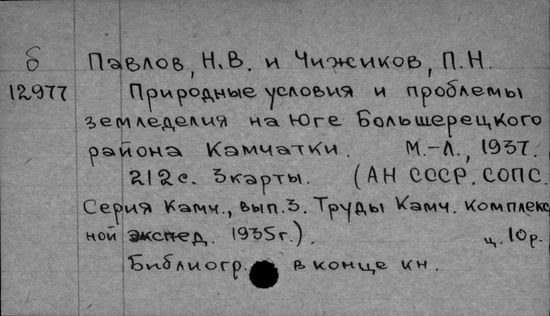 б Павлов, Н.В. и Чижиков, П.Н.
12977 Природные условия и проблемы
земледелия на юге Большерецкого
района Камчатки. М.-Л., 1937.
212с. 3карты. (АН СССР. СОПС.
Серия Камч., вып.3. Труды Камч. комплекс
ной экспед. 1935г.). ц. 10р.
Библиогр. в конце кн.